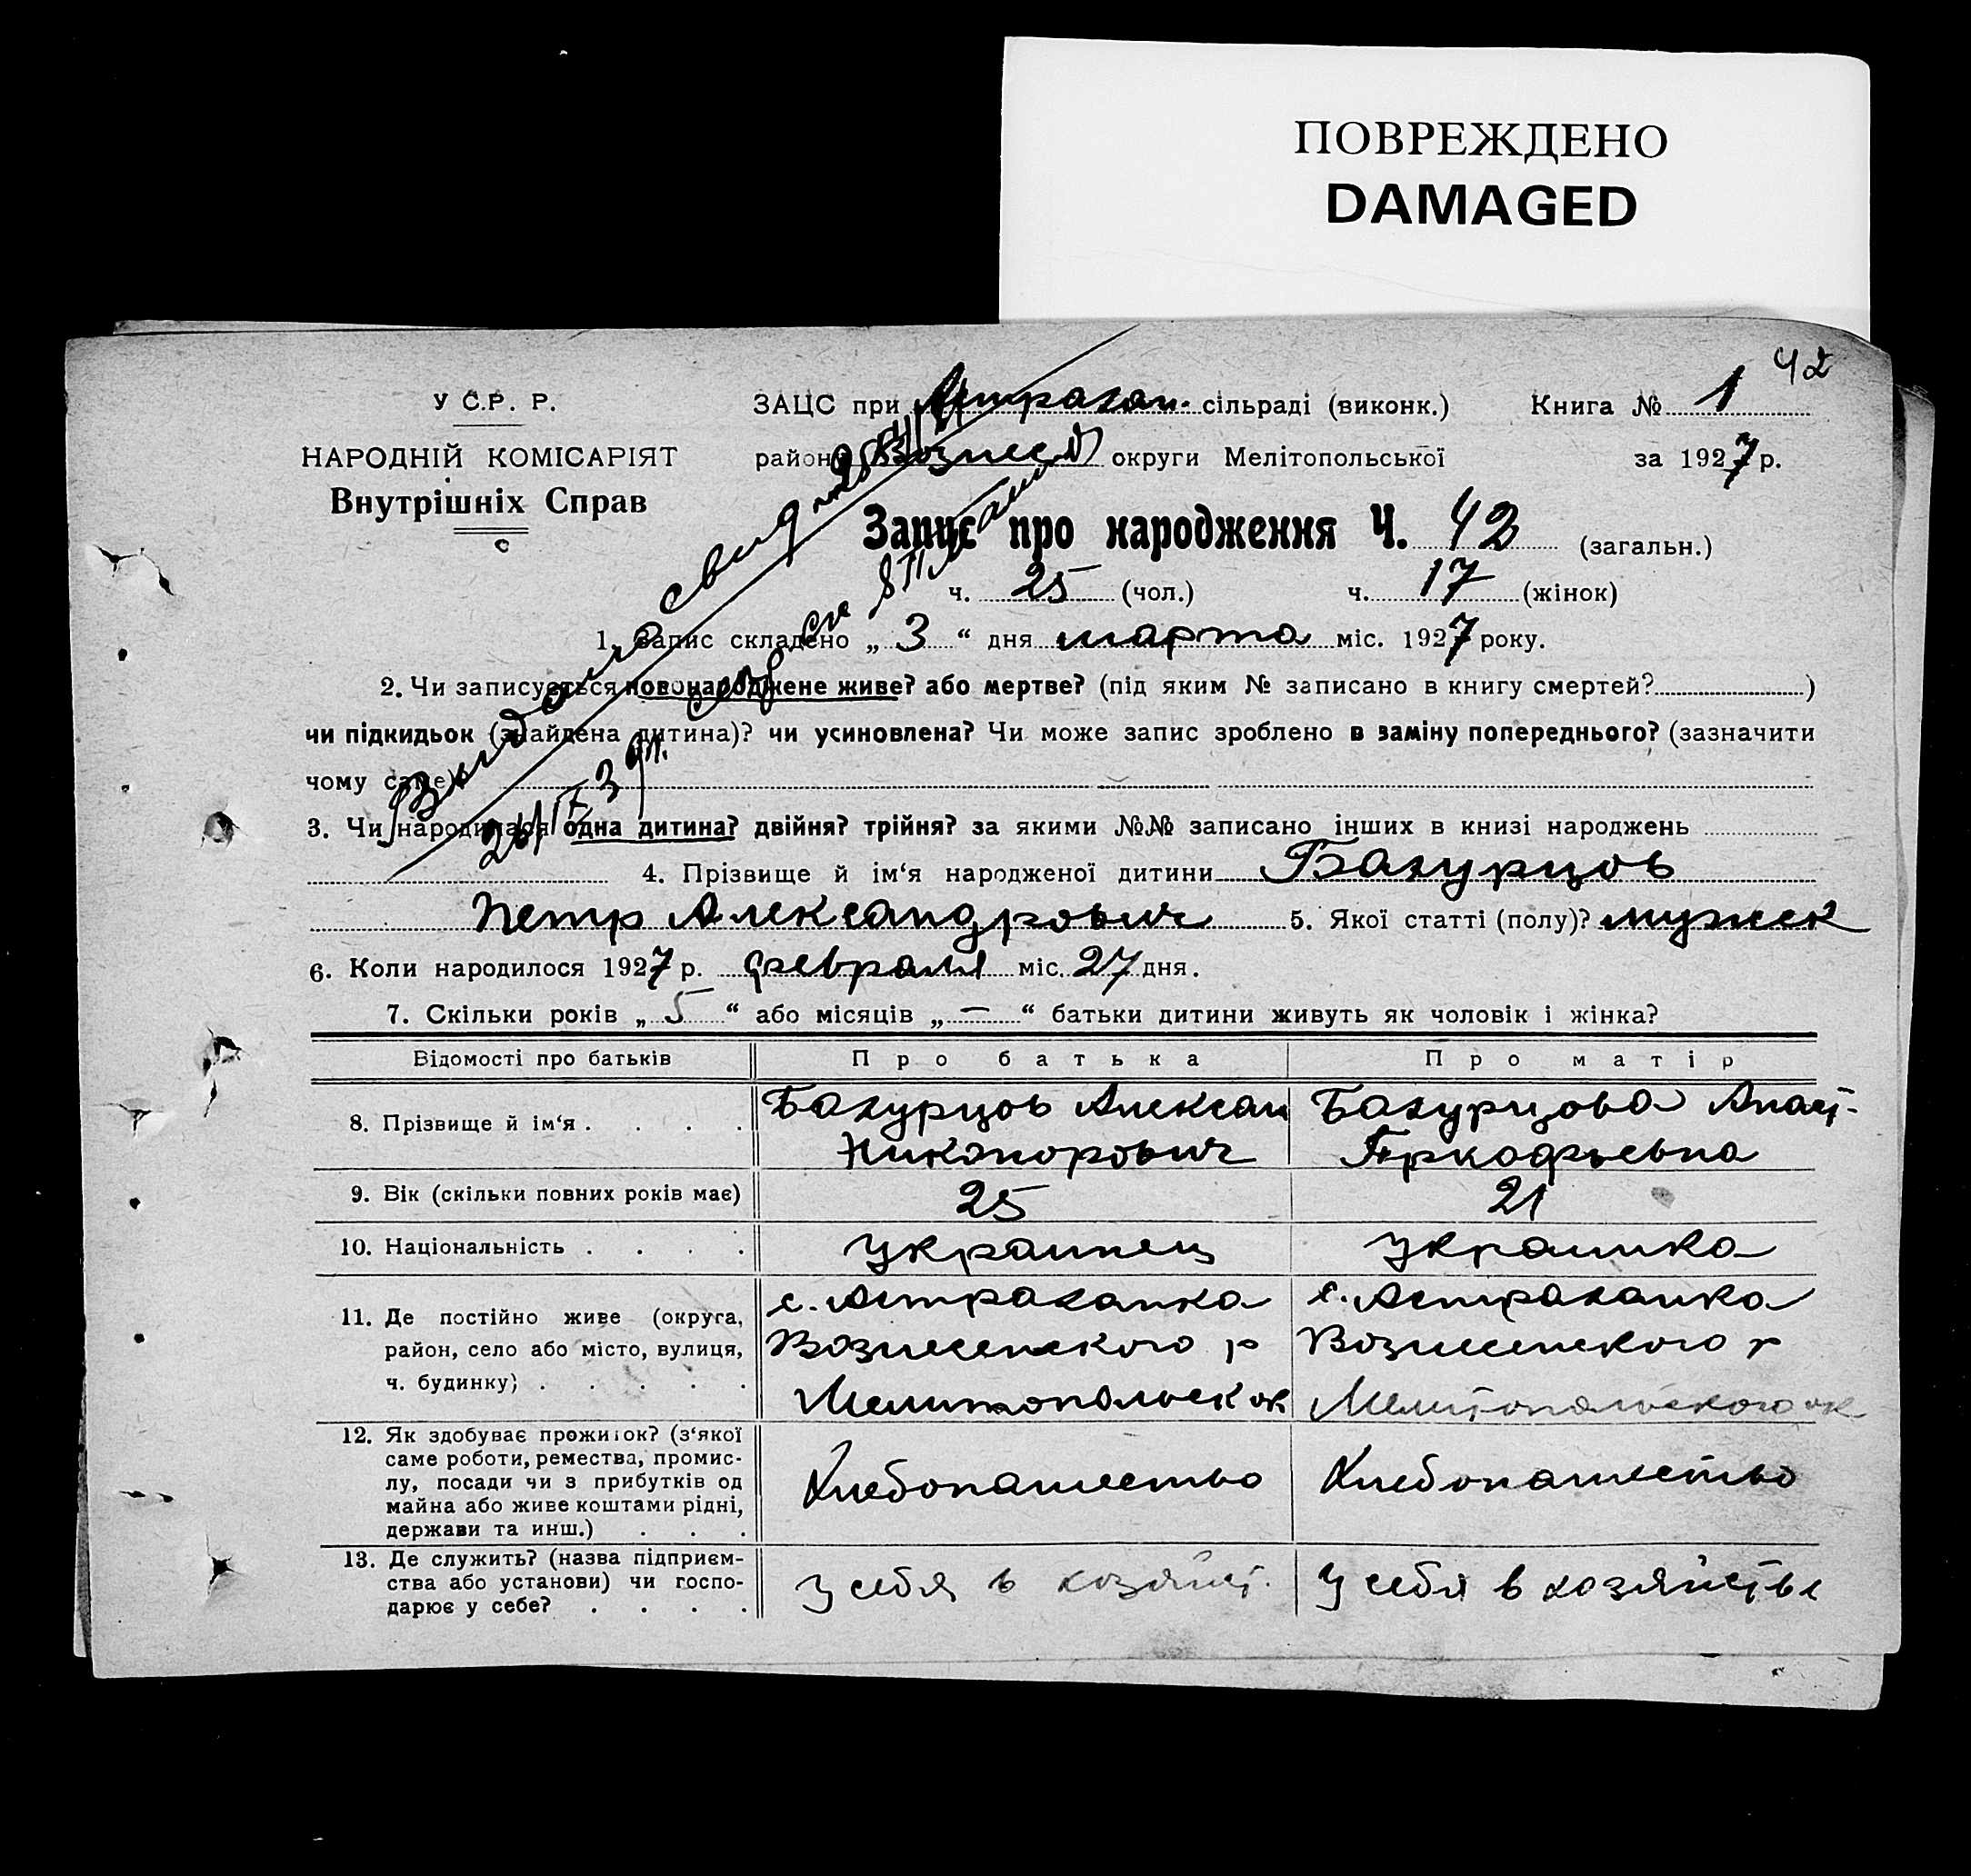 ПОВРЕЖДЕНО
DAMAGED
42
У С.Р. Р.
НАРОДНІЙ КОМІСАРІЯТ
Внутрішніх Справ
ЗАЦС при Астрахан. сільраді (виконк.) Книга № 1
район Вознесен округи Мелітопольської за 1927 р.
Запис про народження Ч. 42 (загальн.)
ч. 25 (чол.) ч. 17 (жінок)
Выдано свид
1. Запис складено „ 3 “ дня марта міс. 1927 року.
2. Чи записується новонароджене живе? або мертве? (під яким № записано в книгу смертей? )
чи підкидьок (знайдена дитина)? чи усиновлена? Чи може запис зроблено в заміну попереднього? (зазначити
чому саме)
3. Чи народилася одна дитина? двійня? трійня? за якими №№ записано інших в книзі народжень
4. Прізвище й ім‘я народженої дитини Бахурцов
Петр Александрович 5. Якої статті (полу)? мужск
6. Коли народилося 1927 р. февраля міс. 27 дня.
7. Скільки років „ 5 “ або місяців „ — “ батьки дитини живуть як чоловік і жінка?
Відомості про батьків Про батька Про матір
8. Прізвище й ім‘я . . . . Бахурцов Александ Бахурцова Анаст.
Никонорович
9. Вік (скільки повних років має) 25 21
10. Національність . . . . Украинец Украинка
11. Де постійно живе (округа, с. Астраханка с. Астраханка
район, село або місто, вулиця, Вознесенского р Вознесенского р
ч. будинку) . . . . . Мелитопольск ок Мелитопольского ок
12. Як здобуває прожиток? (з‘якої
саме роботи, ремества, промис-
лу, посади чи з прибутків од Хлебопашество Хлебопашество
майна або живе коштами рідні,
держави та инш.) . . .
13. Де служить? (назва підприєм-
ства або установи) чи госпо- У себя в хозяйст. У себя в хозяйстве
дарює у себе? . . . .